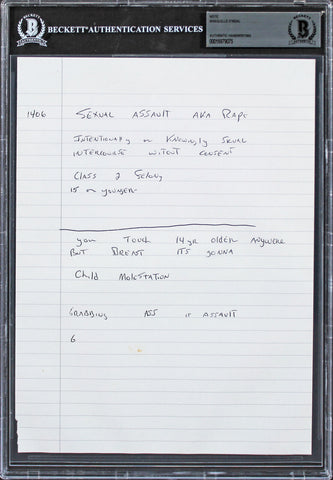 BECKETT AUTHENTICATION SERVICES
NOTE
SHAQUILLE O'NEAL
AUTHENTIC HANDWRITING
BECKETT
BECKETT
1406 SEXUAL ASSAULT AKA RAPE
INTENTIONALY or KNOWINGLY SEXUAL
INTERCOURSE WITOUT CONSENT
CLASS 2 FELONY
15 or YOUNGER
you TOUCH 14 yr OLDER ANYWHERE
BUT BREAST ITS GONNA
Child MOLESTATION
GRABBING ASS is ASSAULT
6